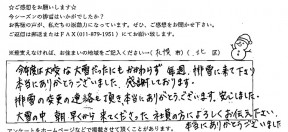 ☆ご感想をお願いします☆
今シーズンの排雪はいかがでしたか?
お客様の声が、私たちの原動力になっています。ぜひ、ご感想をお聞かせ下さい。
ご返信は郵送またはFAX(011-879-1951)にてお願い致します。
※差支えなければ、お住まいの地域をご記入ください→(札幌市)(北区)
今年度は大変な大雪だったにもかかわらず毎週、排雪に来て下さり
本当にありがとうございました。感謝しております。
排雪の変更の連絡も頂き本当にありがとうございます。安心しました。
大雪の中 朝早くから来てくださった社員の方によろしくお伝え下さい。
本当にありがとうございました
アンケートをホームページなどで掲載させて頂くことがあります。